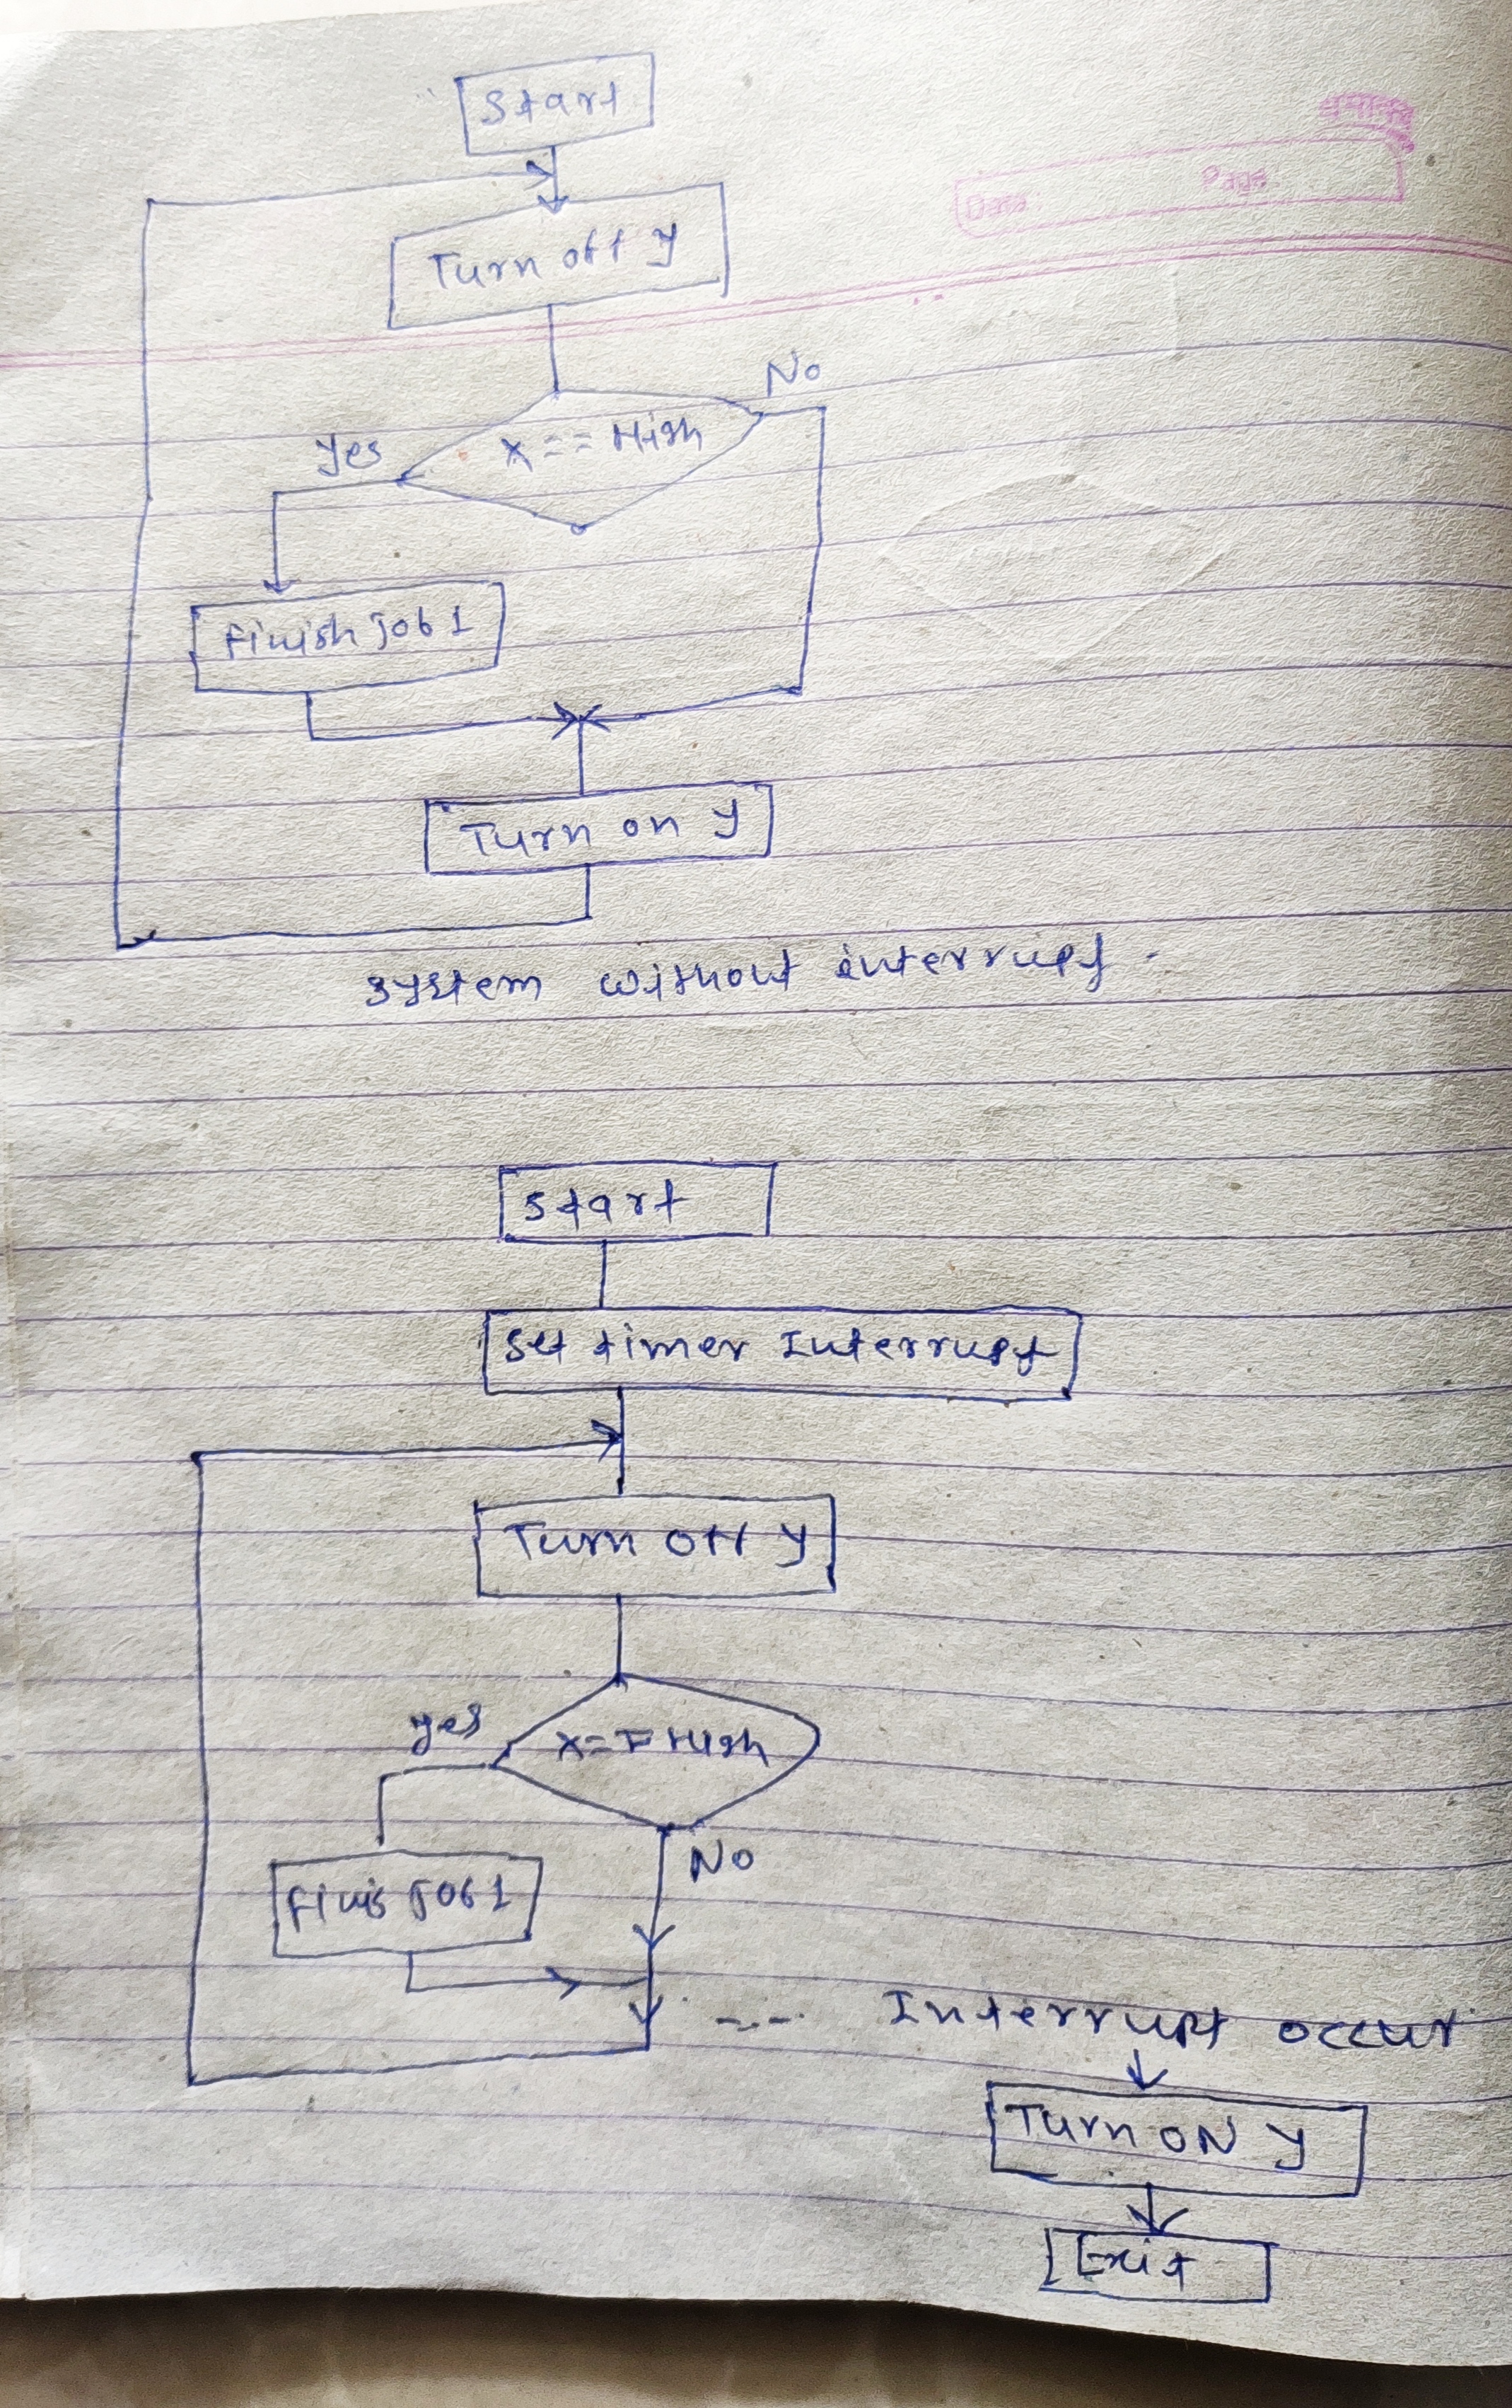 Start
Date: Page:
Turn off y
No
yes
X == High
Finish Job 1
Turn on y
system without interrupt.
Start
Set timer Interrupt
Turn Off y
yes
No
Finis Job 1
---- Interrupt occur
Turn ON y
Exit